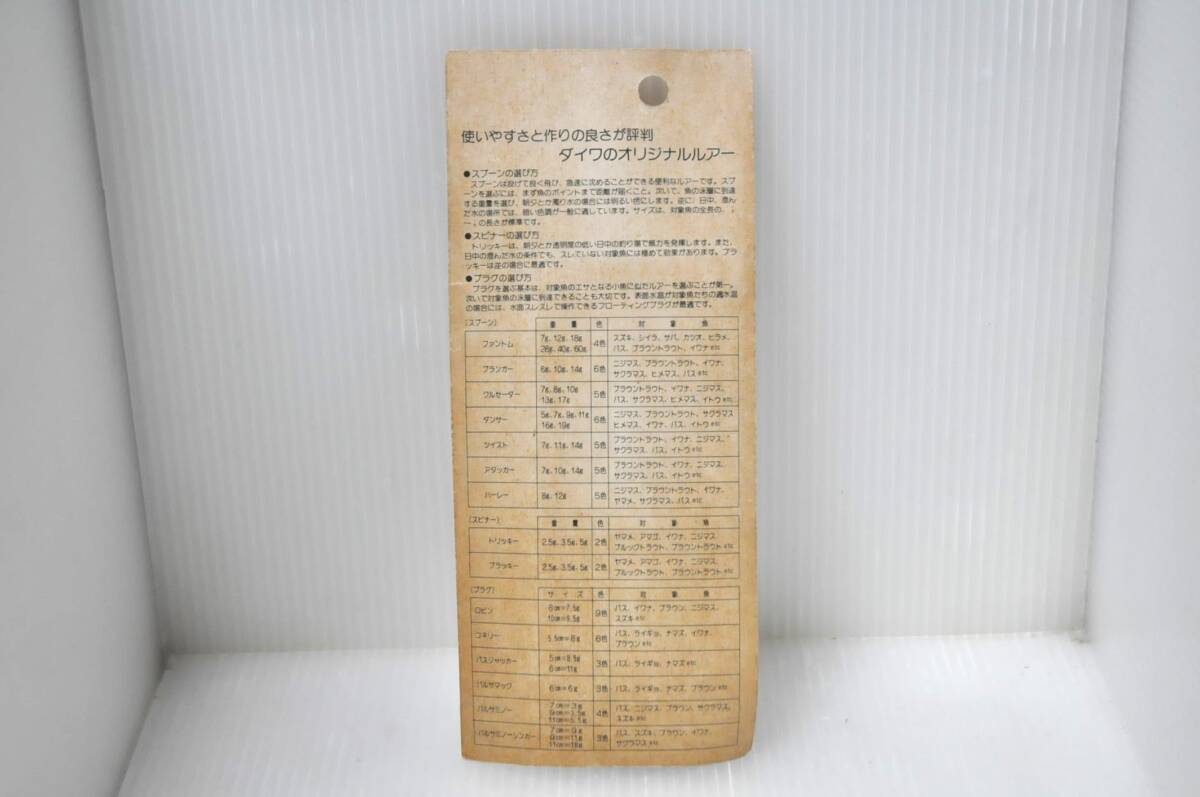 使いやすさと作りの良さが評判
ダイワのオリジナルルアー
●スプーンの選び方
スプーンは投げて良く飛び、急速に沈めることができる便利なルアーです。スプ
ーンを選ぶには、まず魚のポイントまで距離が届くこと。次いで、魚の泳層に到達
する重量を選び、朝夕とか濁り水の場合には明るい色にします。逆に、日中、澄ん
だ水の場所では、暗い色調が一般に適しています。サイズは、対象魚の全長の
の長さが標準です。
●スピナーの選び方
トリッキーは、朝夕とか透明度の低い日中の釣り場で威力を発揮します。また、
日中の澄んだ水の条件でも、スレていない対象魚には極めて効果があります。ブラ
ッキーは逆の場合に最適です。
●プラグの選び方
プラグを選ぶ基本は、対象魚のエサとなる小魚に似たルアーを選ぶことが第一。
次いで対象魚の泳層に到達できることも大切です。表面水温が対象魚たちの適水温
の場合には、水面スレスレで操作できるフローティングプラグが最適です。
〔スプーン〕 重量 色 対象魚
ファントム 7g、12g、18g 26g、40g、60g 4色 スズキ、シイラ、サバ、カツオ、ヒラメ、バス、ブラウントラウト、イワナetc
プランカー 6g、10g、14g 6色 ニジマス、ブラウントラウト、イワナ、サクラマス、ヒメマス、バスetc
クルセーダー 7g、8g、10g 13g、17g 5色 ブラウントラウト、イワナ、ニジマス、バス、サクラマス、ヒメマス、イトウetc
ダンサー 5g、7g、9g、11g 16g、19g 6色 ニジマス、ブラウントラウト、サクラマス ヒメマス、イワナ、バス、イトウetc
ツイスト 7g、11g、14g 5色 ブラウントラウト、イワナ、ニジマス、サクラマス、バス、イトウetc
アタッカー 7g、10g、14g 5色 ブラウントラウト、イワナ、ニジマス、サクラマス、バス、イトウetc
ハーレー 8g、12g 5色 ニジマス、ブラウントラウト、イワナ、ヤマメ、サクラマス、バスetc
〔スピナー〕 重量 色 対象魚
トリッキー 2.5g、3.5g、5g 2色 ヤマメ、アマゴ、イワナ、ニジマス、ブルックトラウト、ブラウントラウトetc
ブラッキー 2.5g、3.5g、5g 2色 ヤマメ、アマゴ、イワナ、ニジマス、ブルックトラウト、ブラウントラウトetc
〔プラグ〕 サイズ 色 対象魚
ロビン 8cm=7.5g 10cm=9.5g 9色 バス、イワナ、ブラウン、ニジマス、スズキetc
コネリー 5.5cm=8g 6色 バス、ライギョ、ナマズ、イワナ、ブラウンetc
バスジャッカー 5cm=8.5g 6cm=11g 3色 バス、ライギョ、ナマズetc
バルサマック 6cm=6g 3色 バス、ライギョ、ナマズ、ブラウンetc
バルサミノー 7cm=3g 9cm=3.5g 11cm=5.5g 4色 バス、ニジマス、ブラウン、サクラマス、スズキetc
バルサミノーシンカー 7cm=9g 9cm=11g 11cm=18g 3色 バス、スズキ、ブラウン、イワナ、サクラマスetc